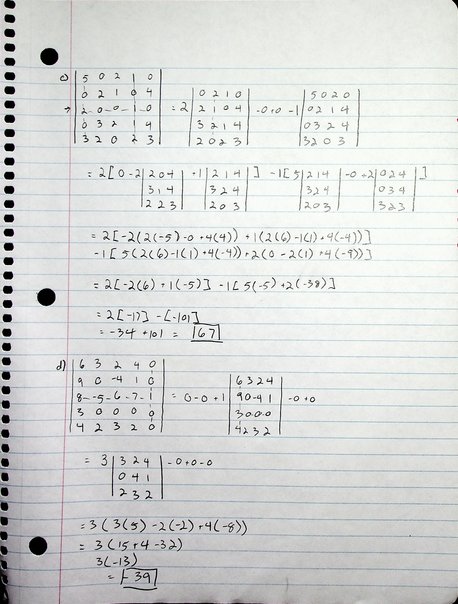 c) | 5 0 2 1 0 |
| 0 2 1 0 4 |
→ | 2 0 0 1 0 | = 2 | 0 2 1 0 | -0+0 -1 | 5 0 2 0 |
| 0 3 2 1 4 | | 2 1 0 4 | | 0 2 1 4 |
| 3 2 0 2 3 | | 3 2 1 4 | | 0 3 2 4 |
| 2 0 2 3 | | 3 2 0 3 |
= 2[ 0-2 | 2 0 4 | +1 | 2 1 4 | ] -1[ 5 | 2 1 4 | -0+2 | 0 2 4 | ]
| 3 1 4 | | 3 2 4 | | 3 2 4 | | 0 3 4 |
| 2 2 3 | | 2 0 3 | | 2 0 3 | | 3 2 3 |
= 2[-2(2(-5)-0+4(4)) + 1(2(6)-1(1)+4(-4))]
-1[ 5(2(6)-1(1)+4(-4))+2(0-2(1)+4(-9))]
= 2[-2(6) + 1(-5)] -1[5(-5)+2(-38)]
= 2[-17] - [-101]
= -34 + 101 = 67
d) | 6 3 2 4 0 |
| 9 0 -4 1 0 |
| 8 -5 -6 -7 -1 | = 0-0+1 | 6 3 2 4 | -0+0
| 3 0 0 0 0 | | 9 0 -4 1 |
| 4 2 3 2 0 | | 3 0 0 0 |
| 4 2 3 2 |
= 3 | 3 2 4 | -0+0-0
| 0 4 1 |
| 2 3 2 |
= 3(3(5)-2(-2)+4(-8))
= 3(15+4-32)
3(-13)
= -39